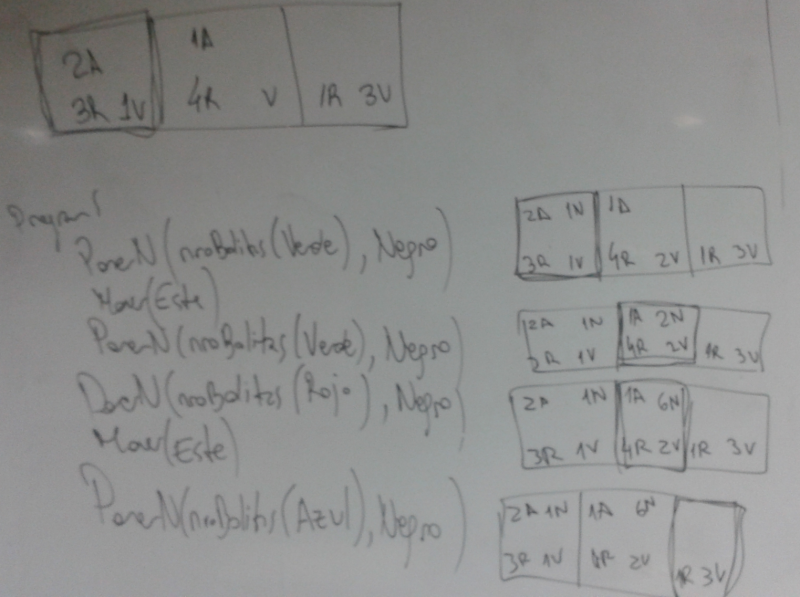 2A 1A
3R 1V 4R V 1R 3V
Program
PonerN(nroBolitas(Verde), Negro)
Mover(Este)
PonerN(nroBolitas(Verde), Negro)
PonerN(nroBolitas(Rojo), Negro)
Mover(Este)
PonerN(nroBolitas(Azul), Negro)
2A 1N 1A
3R 1V 4R 2V 1R 3V
2A 1N 1A 2N
3R 1V 4R 2V 1R 3V
2A 1N 1A 6N
3R 1V 4R 2V 1R 3V
2A 1N 1A 6N
3R 1V 4R 2V 1R 3V